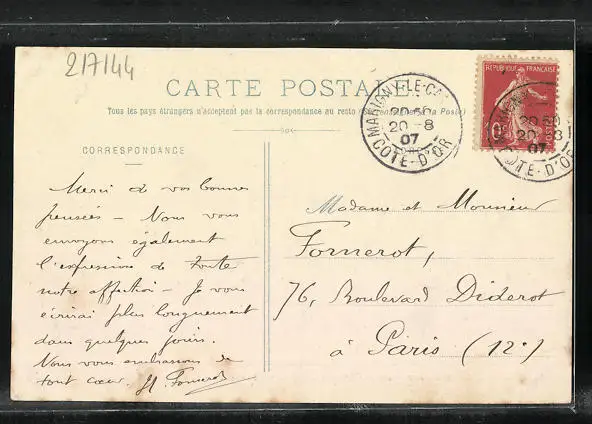 217144
CARTE POSTALE
Tous les pays étrangers n'acceptent pas la correspondance au recto (se renseigner à la Poste)
CORRESPONDANCE
Merci de vos bonnes
pensées – Nous vous
envoyons également
l'expression de toute
notre affection – Je vous
écrirai plus longuement
dans quelques jours.
Nous vous embrassons de
tout cœur. Fornerot
MARIGNY-LE-CA
20-8
07
COTE-D'OR
REPUBLIQUE FRANÇAISE
10
07
COTE-D'O
Madame et Monsieur
Fornerot,
76, Boulevard Diderot
à Paris (12e)